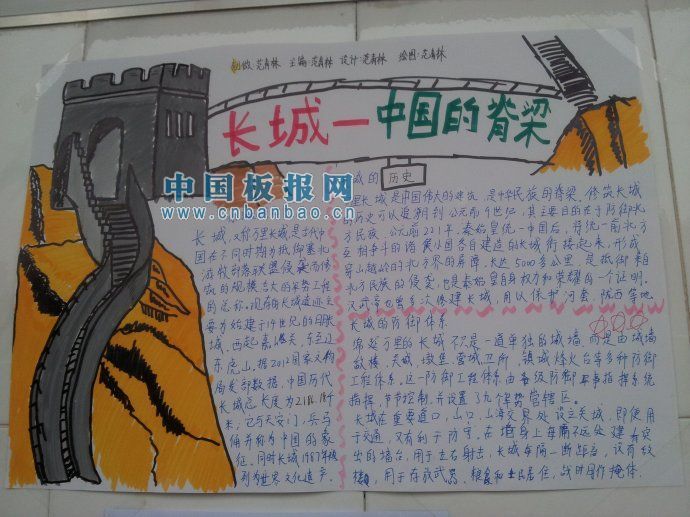 创做:范春林 主编:范春林 设计:范春林 绘图:范春林
长城—中国的脊梁
中国板报网
www.cnbanbao.cn
长城,又称万里长城是古代中
国在不同时期为抵御塞北
游牧部落联盟侵袭而修
成的规模浩大的军事工程
的总称。现存的长城遗迹主
要为始建于14世纪的明长
城,西起嘉峪关,东至辽
东虎山。据2012国家文物
局发部数据,中国历代
长城总长度为21196.18千
米,它与天安门,兵马
俑并称为中国的象
征。同时长城1987年被
列为世界文化遗产。
城的历史
里长城是中国伟大的建筑,是中华民族的脊梁。修筑长城
的历史可以追朔到公元前9世纪,其主要目的在于防御北
方民族。公元前221年,秦始皇统一中国后,将统一前北方
互相争斗的诸侯小国各自建造的长城衔接起来,形成
穿山越岭的北方界的屏障,长达5000多公里,是抵御来自
北方民族的侵袭,也是秦始皇自身权力和荣耀的一个证明。
汉武帝也曾多次修建长城,用以保护河套、陇西等地
长城的防御体系
绵延万里的长城不只是一道单独的城墙,而是由城墙
敌楼、关城、墩堡、营城卫所、镇城烽火台等多种防御
工程体系。这一防御工程体系由各级防御军事指挥系统
指挥,节节控制,并设置了九个军事管辖区。
长城在重要道口,山口,山海交界处设立关城,即便用
于交通,又有利于防守。在墙身上每隔不远处建有突
出的墙台,用于左右射击,长城每隔一断距离,设有敌
楼,用于存放武器、粮食和士兵居住,战时用作掩体.